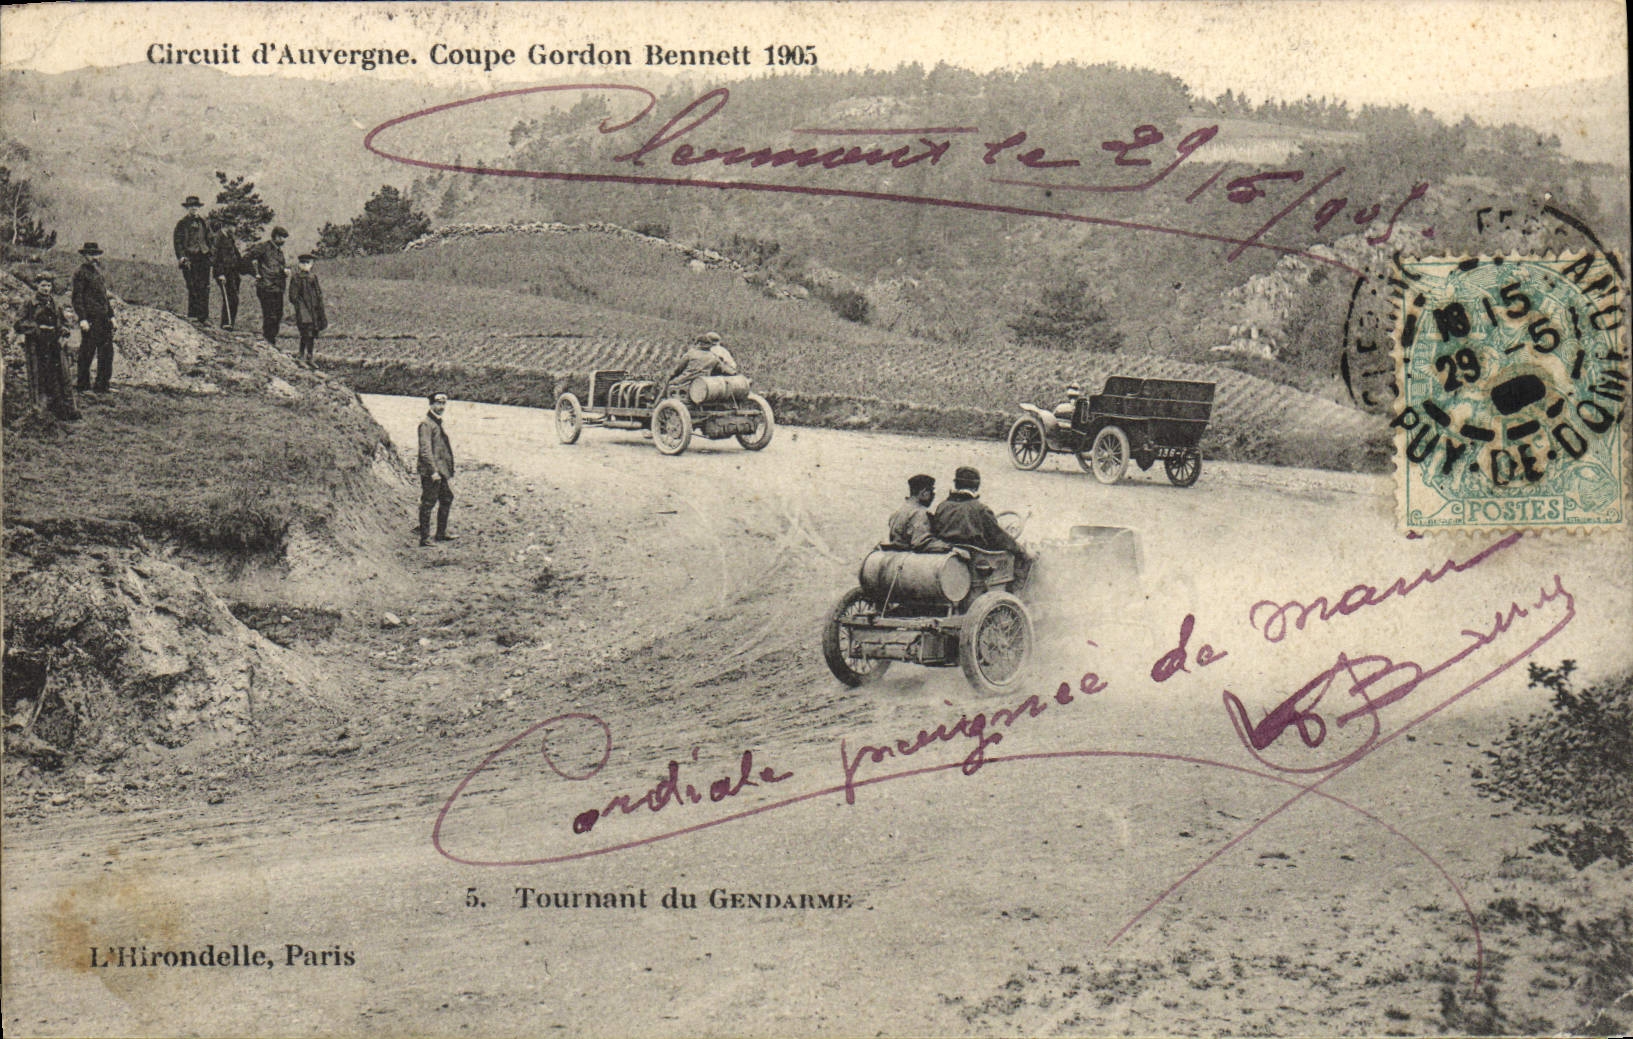 Circuit d'Auvergne. Coupe Gordon Bennett 1905
Clermont le 29
/5/905.
18 15
29 -5
PUY-DE-DOME
POSTES
138
Cordiale poignée de main
5. Tournant du GENDARME
L'Hirondelle, Paris